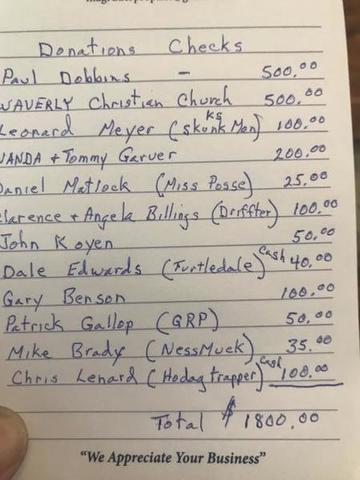 Donations Checks
Paul Dobbins - 500.00
WAVERLY Christian Church 500.00
Leonard Meyer (skunk ks Man) 100.00
WANDA + Tommy Garver 200.00
Daniel Matlock (Miss Posse) 25.00
Clarence + Angela Billings (Driffter) 100.00
John Koyen 50.00
Dale Edwards (Turtledale) Cash 40.00
Gary Benson 100.00
Patrick Gallop (GRP) 50.00
Mike Brady (NessMuck) 35.00
Chris Lenard (Hodag trapper) Cash 100.00
Total $ 1800.00
"We Appreciate Your Business"